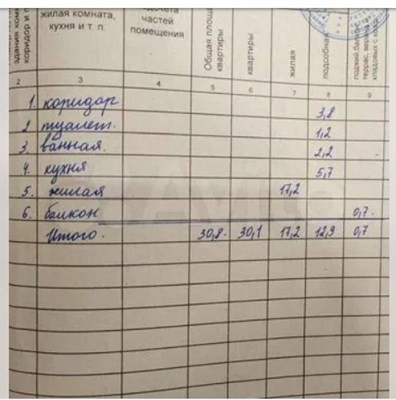 жилая комната,
кухня и т. п.
частей
помещения
Общая площ
квартиры
квартиры
жилая
подсобная
2 3 4 5 6 7 8 9
1. коридор 3,8
2 туалет. 1,2
3. ванная. 2,2
4. кухня 5,7
5. жилая 17,2
6. балкон 0,7
Итого. 30,8 30,1 17,2 12,9 0,7